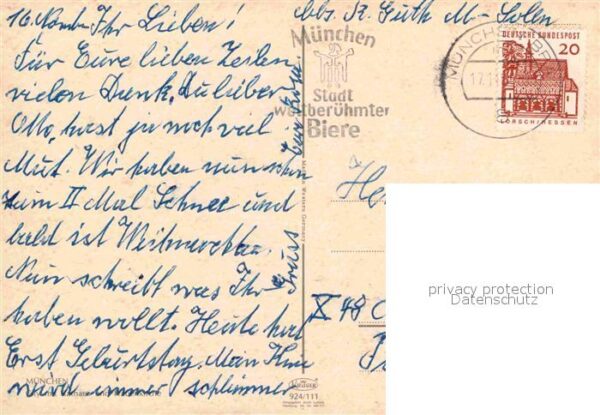 16. Novbr Ihr Lieben!
Für Eure lieben Zeilen
vielen Dank, Du lieber
Otto, hast ja noch viel
Mut. Wir haben nun schon
zum II Mal Schnee und
bald ist Weihnachten.
Nun schreibt was Ihr
haben wollt. Heute hat
Erst Geburtstag. Mein Knie
wird immer schlimmer
Gruss
Abs. R. Guth M-Solln
München
Stadt
weltberühmter
Biere
MÜNCHEN
17.11
DEUTSCHE BUNDESPOST
20
LORSCH/HESSEN
He
X 48 C
privacy protection
Datenschutz
MÜNCHEN
924/111